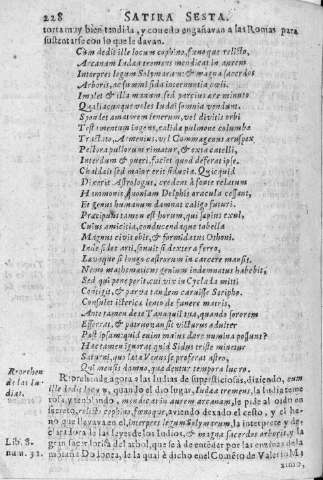 228 SATIRA SESTA.
torta muy bien tendida, y con esto engañavan a las Romas para
sustentarse con lo que le davan.
Cum dedit ille locum cophino, fœnoque relicto,
Arcanam Iudæa tremens mendicat in aurem
Interpres legum Solymarum: & magna sacerdos
Arboris, ac summi fida internuntia cœli.
Implet & illa manum sed parcius ære minuto
Qualiacunque voles Iudæi somnia vendunt.
Spondet amatorem tenerum, vel divitis orbi
Testamentum ingens, calida pulmone columba
Tractato, Armenius, vel Commagenus aruspex
Pectora pullorum rimatur, & exta catelli,
Interdum & pueri, faciet quod deferat ipse.
Chaldæis sed maior erit fiducia. Quicquid
Dixerit Astrologus, credent à fonte relatum
Hammonis, quoniam Delphis oracula cessant,
Et genus humanum damnat caligo futuri.
Præcipuus tamen est horum, qui sæpius exul,
Cuius amicitia, conducendaque tabella
Magnus civis obijt, & formidatus Othoni.
Inde fides arti, sonuit si dextera ferro,
Lævaque si longo castrorum in carcere mansit.
Nemo mathematicus genium indemnatus habebit,
Sed qui penè perijt, cui vix in Cyclada mitti
Contigit, & parva tandem caruisse Seripho.
Consulet ictericæ lento de funere matris,
Ante tamen de te Tanaquil tua, quando sororem
Efferat, & patruos: an sit victurus adulter
Post ipsam: quid enim maius dare numina possunt?
Hæc tamen ignorat, quid Sidus triste minetur
Saturni, qua læta Venus se proferat astro,
Qui mensis damno, quæ dentur tempora lucro.
Reprehen
de las Iu
dias.
Reprehende agora a las Iudias de supersticiosas, diziendo, cum
ille dedit locum, quando el dio lugar, Iudæa tremens, la iudia temerosa
, mendicat in aurem arcanam, le pide al oido en
secreto, relicto cophino, fœnoque, aviendo dexado el cesto, y el heno
que llevava en el, interpres legum Solymarum, la interprete y declaradora
de las leyes de los Iudios, & magna sacerdos arboris, y la
Lib. 8.
num. 32.
gran sacerdotisa del arbol, que se à de entender de la enzina